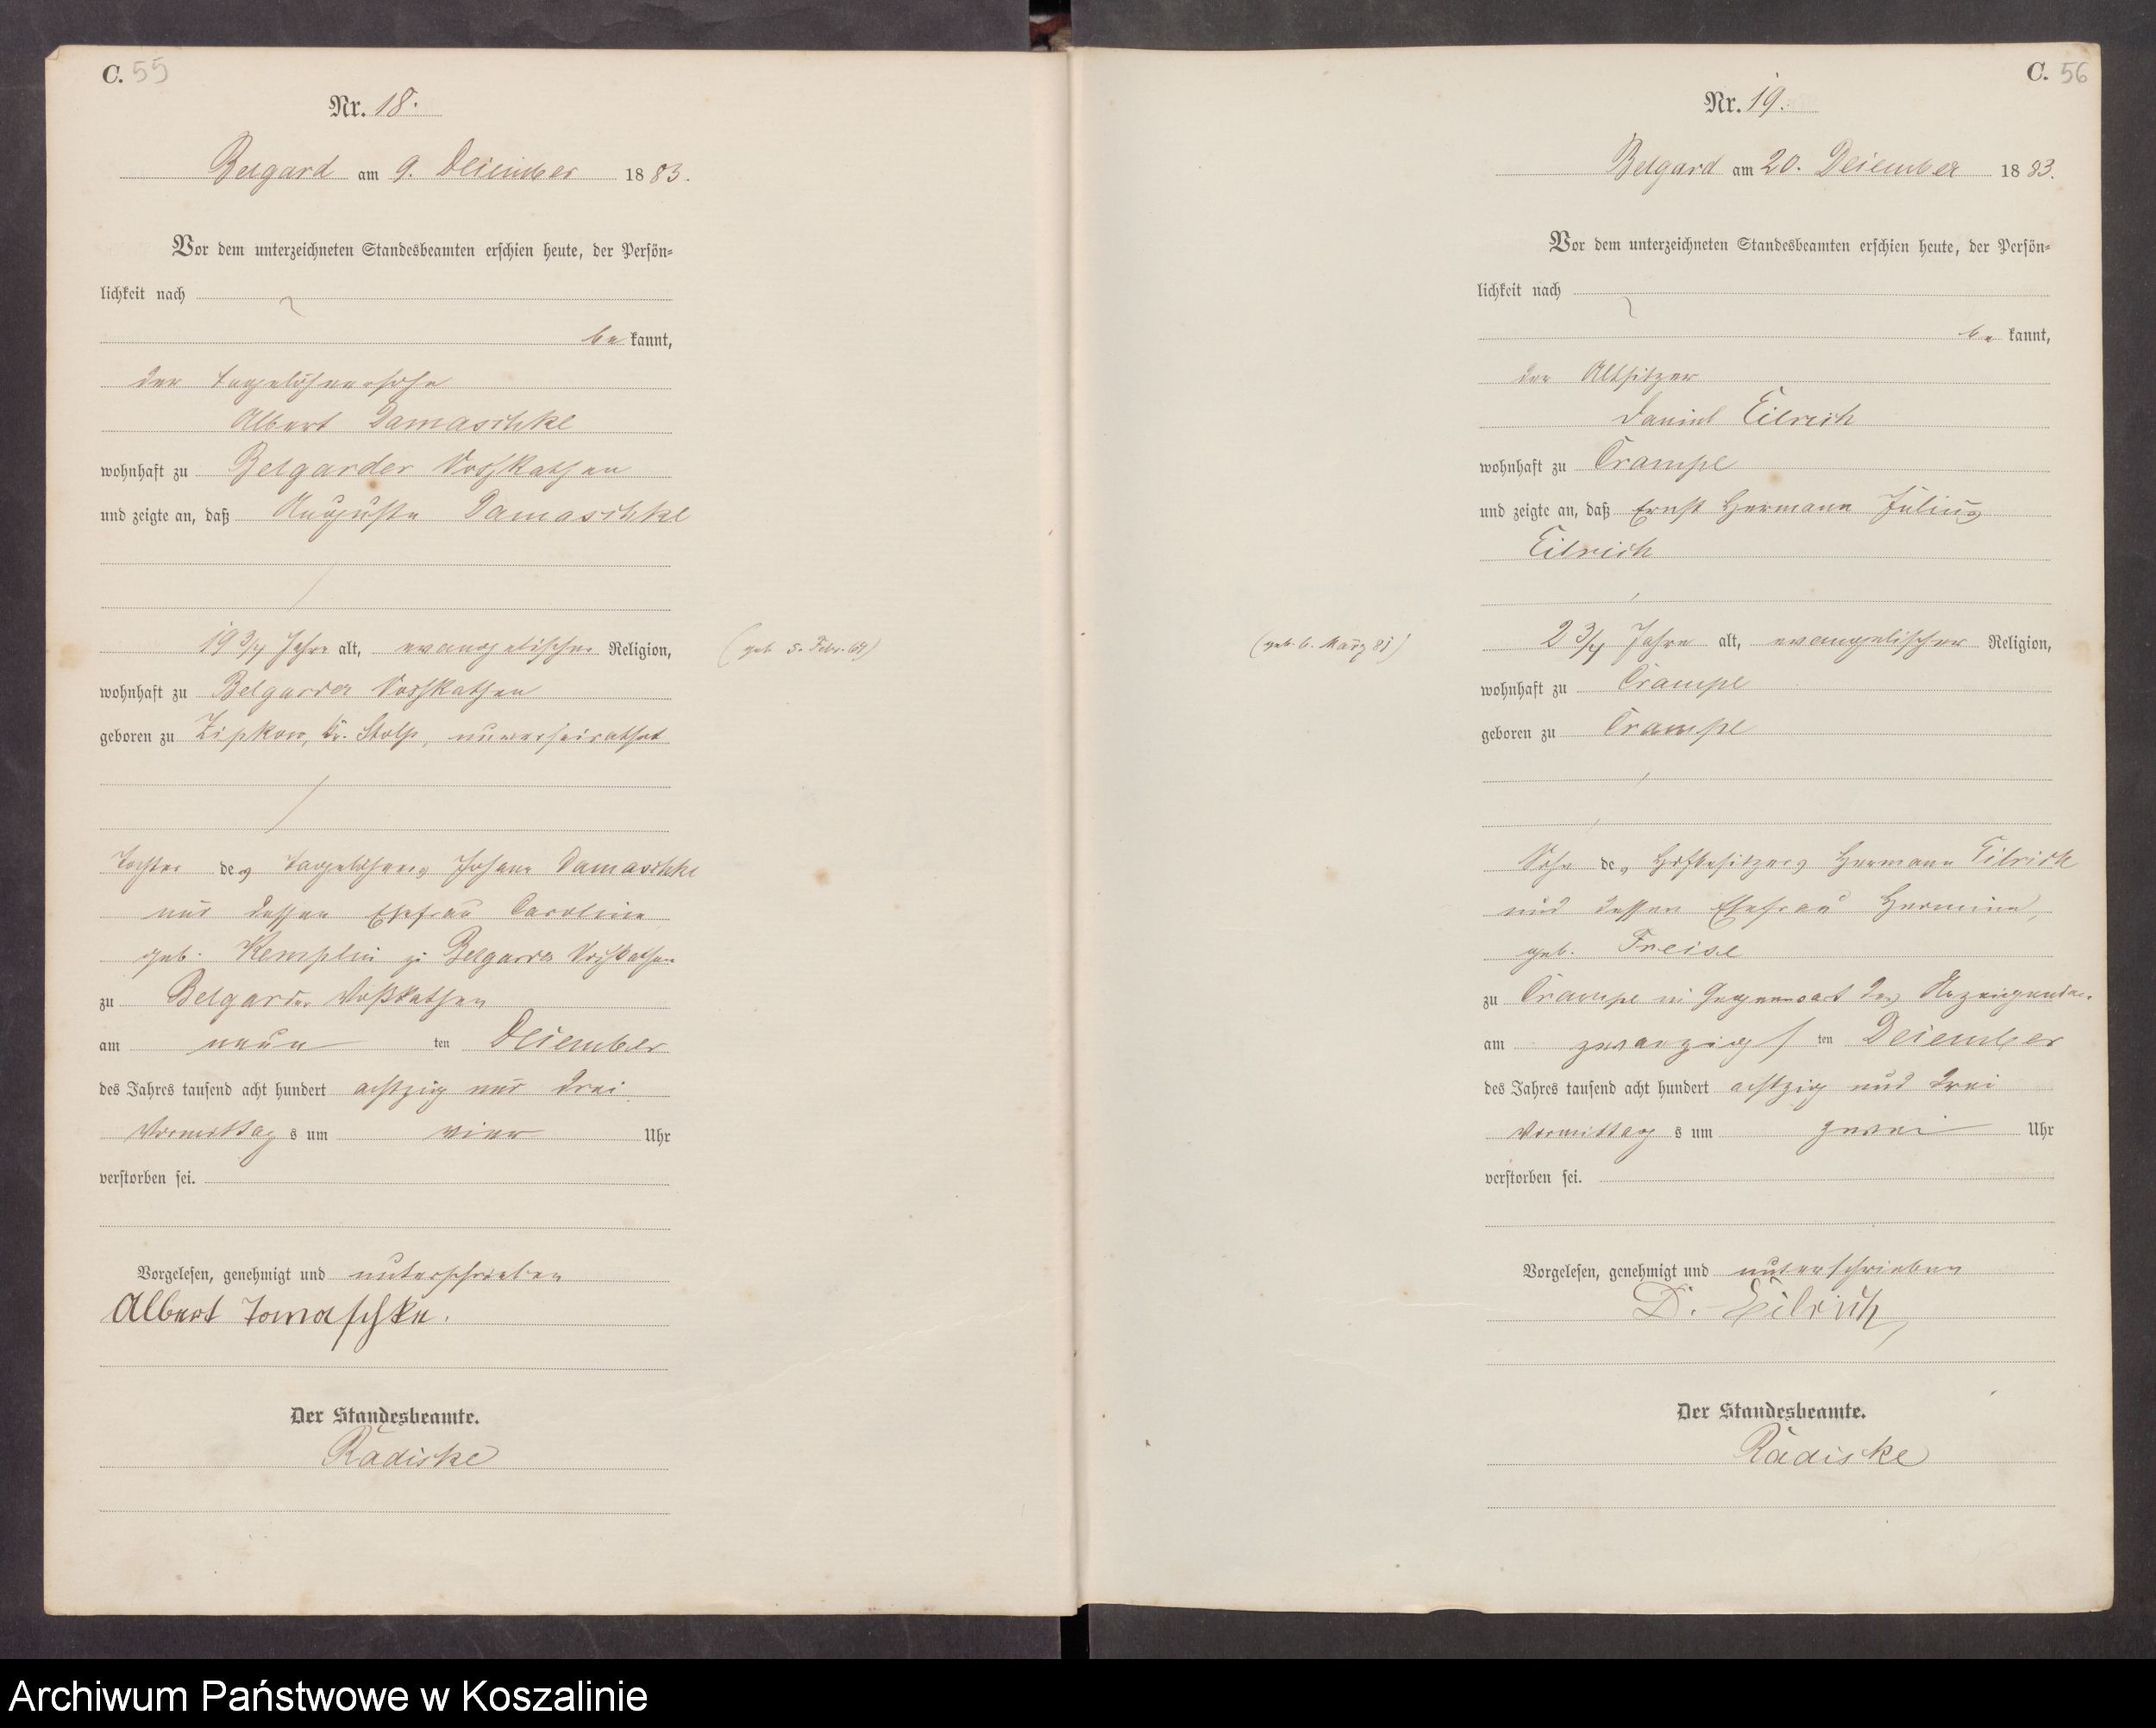 C. 55
Nr. 18.
Belgard am 9. December 1883.
Vor dem unterzeichneten Standesbeamten erschien heute, der Persön=
lichkeit nach
be kannt,
der Tagelöhnersohn
Albert Damaschke
wohnhaft zu Belgarder Voßkathen
und zeigte an, daß Auguste Damaschke
19 3/4 Jahre alt, evangelischer Religion,
(geb. 5. Febr. 64)
wohnhaft zu Belgarder Voßkathen
geboren zu Zipkow, Kr. Stolp, unverheirathet
Tochter des Tagelöhners Johann Damaschke
und dessen Ehefrau Caroline
geb. Kemplin zu Belgarder Voßkathen
zu Belgarder Voßkathen
am neun ten December
des Jahres tausend acht hundert achtzig und drei
Vormittag s um vier Uhr
verstorben sei.
Vorgelesen, genehmigt und unterschrieben
Albert Tomaschke.
Der Standesbeamte.
Radiske
C. 56
Nr. 19.
Belgard am 20. December 1883.
Vor dem unterzeichneten Standesbeamten erschien heute, der Persön=
lichkeit nach
be kannt,
der Altsitzer
Daniel Eilrich
wohnhaft zu Crampe
und zeigte an, daß Ernst Hermann Julius
Eilrich
(geb. 6. März 81)
2 3/4 Jahre alt, evangelischer Religion,
wohnhaft zu Crampe
geboren zu Crampe
Sohn des Hofbesitzers Hermann Eilrich
und dessen Ehefrau Hermine,
geb. Freise
zu Crampe in Gegenwart des Anzeigenden
am zwanzigs ten December
des Jahres tausend acht hundert achtzig und drei
Vormittag s um zwei Uhr
verstorben sei.
Vorgelesen, genehmigt und unterschrieben
D. Eilrich
Der Standesbeamte.
Radiske
Archiwum Państwowe w Koszalinie